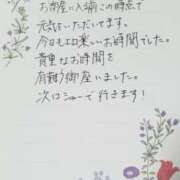 お部屋に入れ この時点で
元気をいただいてます。
今日もエロ楽しいお時間でした。
貴重なお時間を
有難う御座いました。
次はショーで行きます!